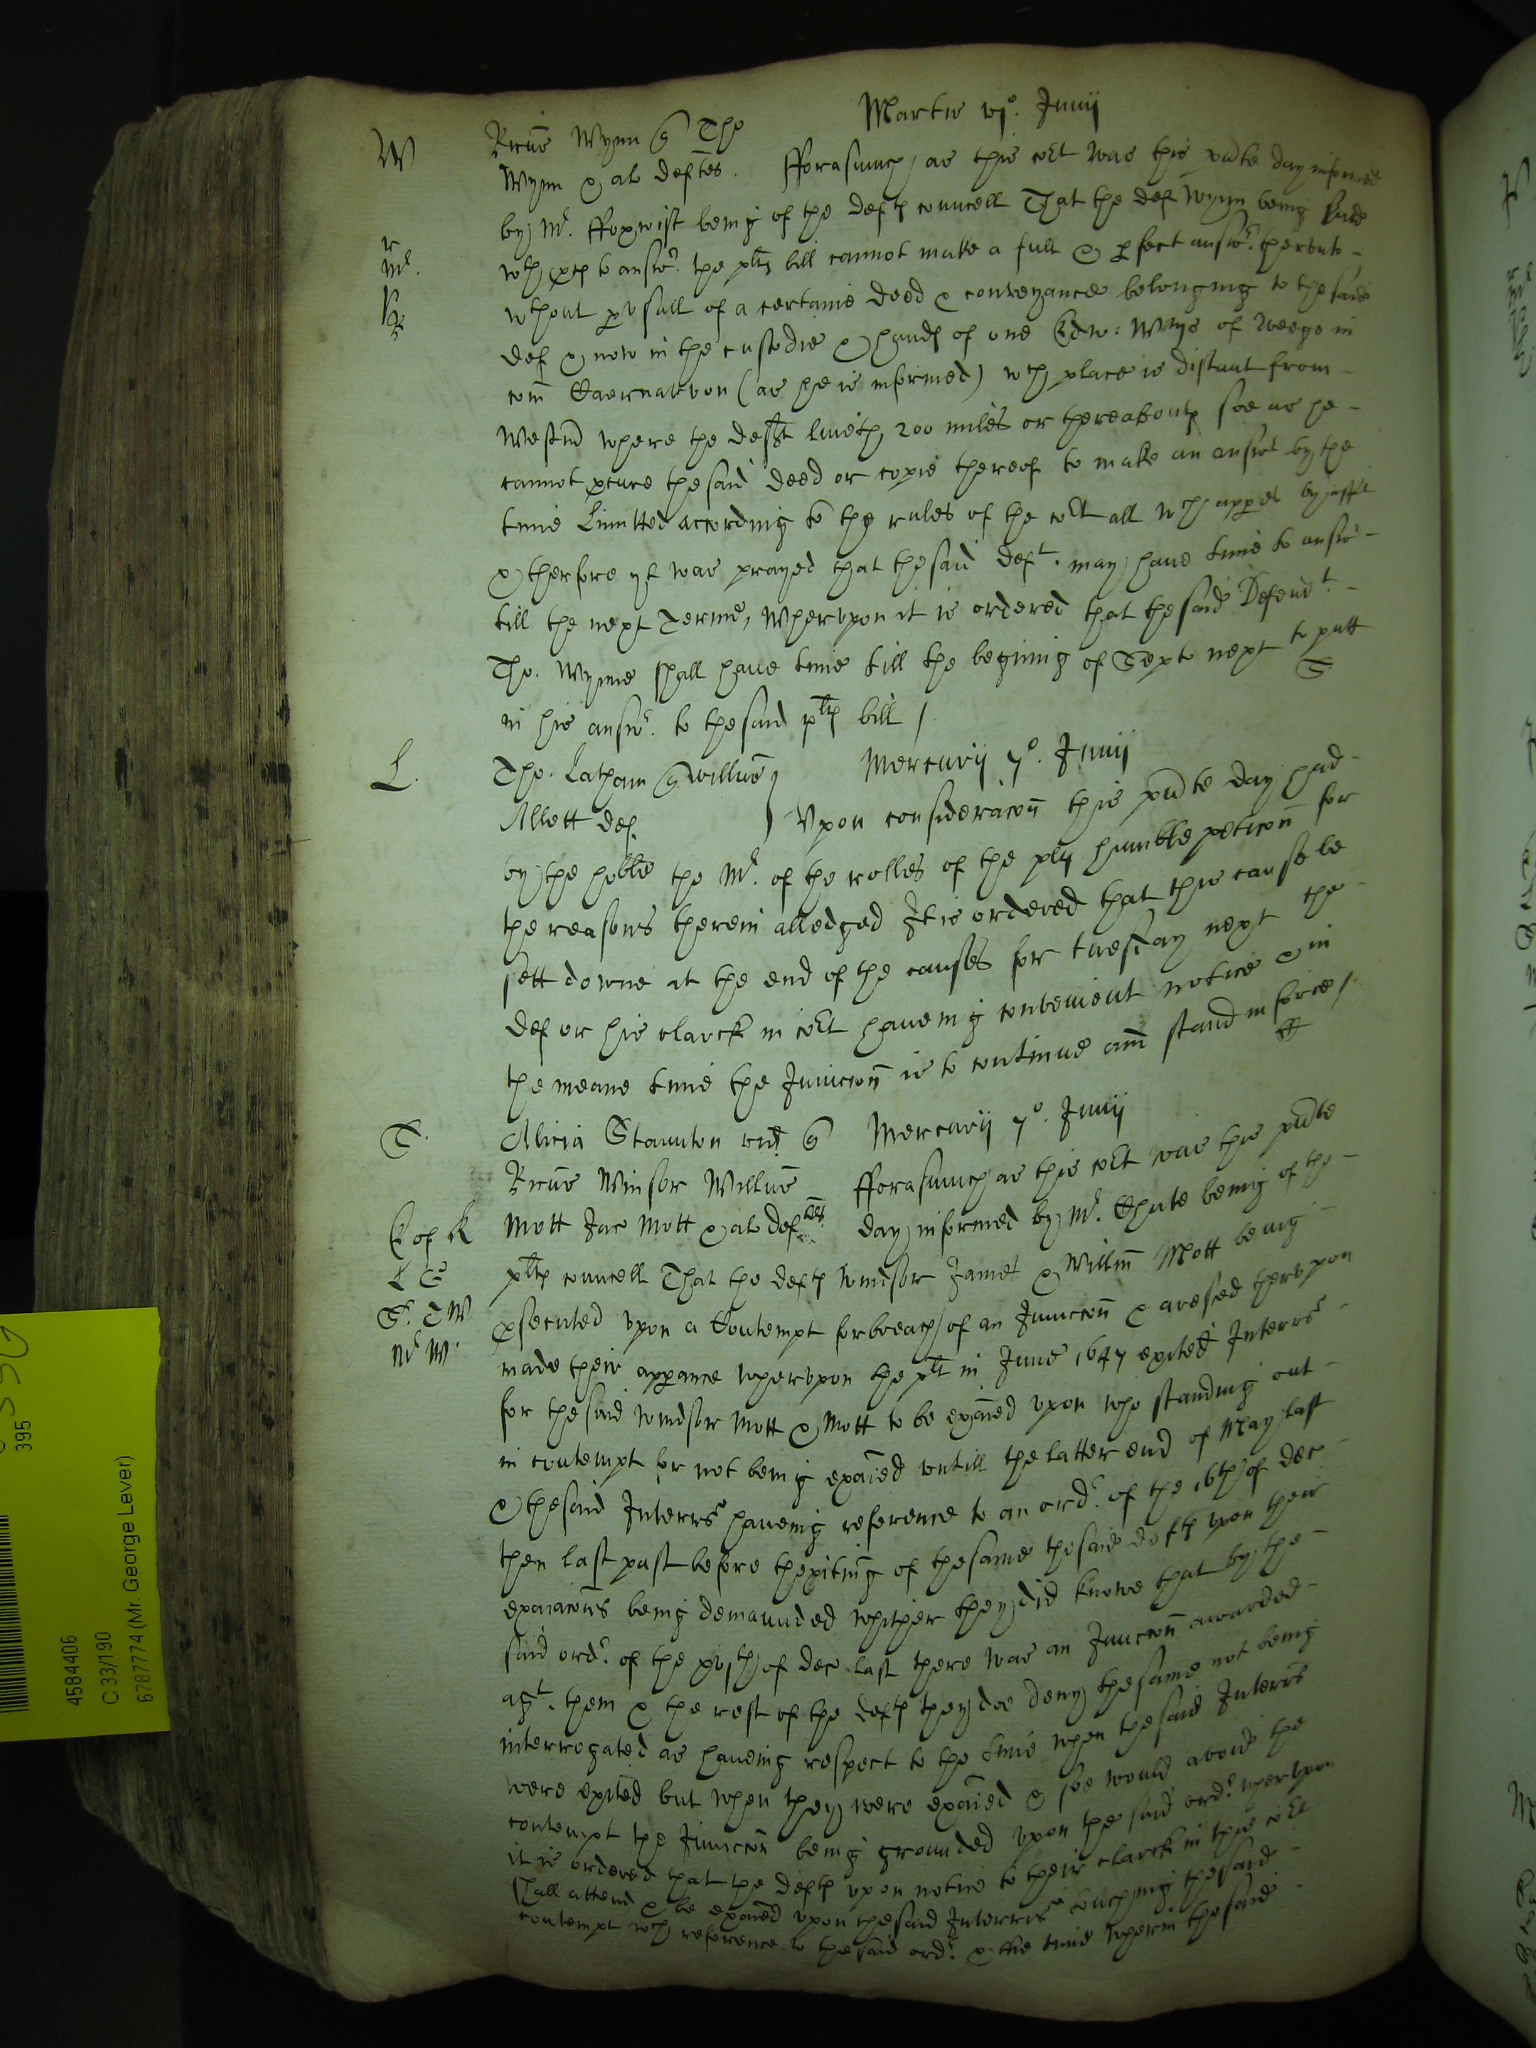 Martis vj.º Junij
W
Ricus Wynn q Tho
Wynn & al deftes. Fforasmuch as this Cort was this pnte day informed
by Mr. Ffoxwist being of the defts councell That the def Wynn being
wth to answr. the plts bill cannot make a full & pfect answr. therunto -
r
Mr.
wthout pusall of a certaine deed & conveyance belonging to the said
def & now in the custodie & hands of one Edw: of in
com Caernarvon (as he is informed) wch place is distant from -
where the deft liveth 200 miles or thereabouts soe as he -
cannot pcure the said deed or copie thereof to make an answr by the
time limitted according to the rules of the Cort all wch appes by
& therfore yt was prayed that the said deft. may have time to answr -
till the next Terme, Wherupon it is ordered that the said Defendt. -
Tho. Wynne shall have time till the begining of Septe next to putt
in his answr. to the said plts bill /.
S
L.
Tho. Latham q Willus
Mercurij 7º. Junij
Allett def. Upon consideracon this pnte day had -
by the hoble the Mr. of the rolles of the plts humble peticon for
the reasons therein alledged It is ordered that this cause be
sett downe at the end of the causes for tuesday next the -
def or his clarck in Cort haveing convenient notice & in
the meane time the Junccon is to continue and stand in force /.
ff
S.
Alicia Staunton vid q
Mercurij 7º. Junij
Ricus Winsor Willus Fforasmuch as this Cort was this pnte
Mott Jac Mott & al deftes day informed by Mr. Chute being of the -
plts councell That the defts Windsor James & Willm Mott being -
S. T W
psecuted upon a Contempt for breach of an Junccon & arested therupon
Mr W.
made their apparance wherupon the plt in June 1647 exited Interrs -
for the said Windsor Mott & Mott to be exaied upon who standing out -
in contempt for not being exaied untill the latter end of May last
& the said Interrs haveing reference to an ordr. of the 16th of Dec -
then last past before thexiting of the same the said defts upon their
exaiacons being demaunded whither they did knowe that by the -
said ordr. of the xvjth of dec last there was an Junccon awarded -
agt. them & the rest of the defts they doe deny the same not being
interrogated as haveing respect to the time when the said Interrs
were exited but when they were exaied & soe would avoide the
contempt the Junccon being grounded upon the said ordr. wherupon
it is ordered that the defts upon notice to their clarck in this Cort
shall attend & be exaied upon the said Interrs touching the said -
contempt wth reference to the said ordr. & the time wherin the said -
395
4584406
C 33/190
6787774 (Mr. George Lever)